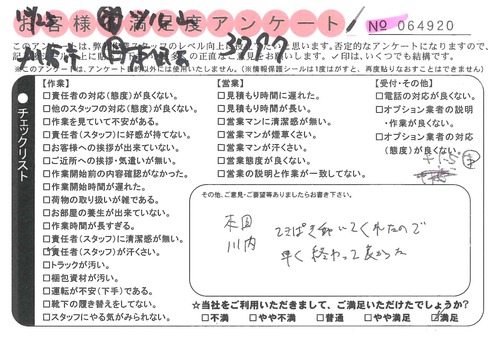 お客様満足度アンケート
No 064920
このアンケートは、弊社
否定的なアンケートになりますので、
正直なご意見をお願いします。✓印は、いくつでも結構です。
チェックリスト
【作業】
□責任者の対応(態度)が良くない。
□他のスタッフの対応(態度)が良くない。
□作業を見ていて不安がある。
□責任者(スタッフ)に好感が持てない。
□お客様への挨拶が出来ていない。
□ご近所への挨拶・気遣いが無い。
□作業開始前の内容確認がなかった。
□作業開始時間が遅れた。
□荷物の取り扱いが雑である。
□お部屋の養生が出来ていない。
□作業時間が長すぎる。
□責任者(スタッフ)に清潔感が無い。
□責任者(スタッフ)が汗くさい。
□トラックが汚い。
□梱包資材が汚い。
□運転が不安(下手)である。
□靴下の履き替えをしてない。
□スタッフにやる気がみられない。
【営業】
□見積もり時間に遅れた。
□見積もり時間が長い。
□営業マンに清潔感が無い。
□営業マンが煙草くさい。
□営業マンが汗くさい。
□営業態度が良くない。
□営業の説明と作業が一致してない。
【受付・その他】
□電話の対応が良くない。
□オプション業者の説明
・作業が良くない。
□オプション業者の対応
(態度)が良くない。
その他、ご意見・ご要望等ありましたらお書き下さい。
本田
川内
てきぱき動いてくれたので
早く終わって良かった
☆当社をご利用いただきまして、ご満足いただけたでしょうか?
□不満 □やや不満 □普通 □やや満足 □満足